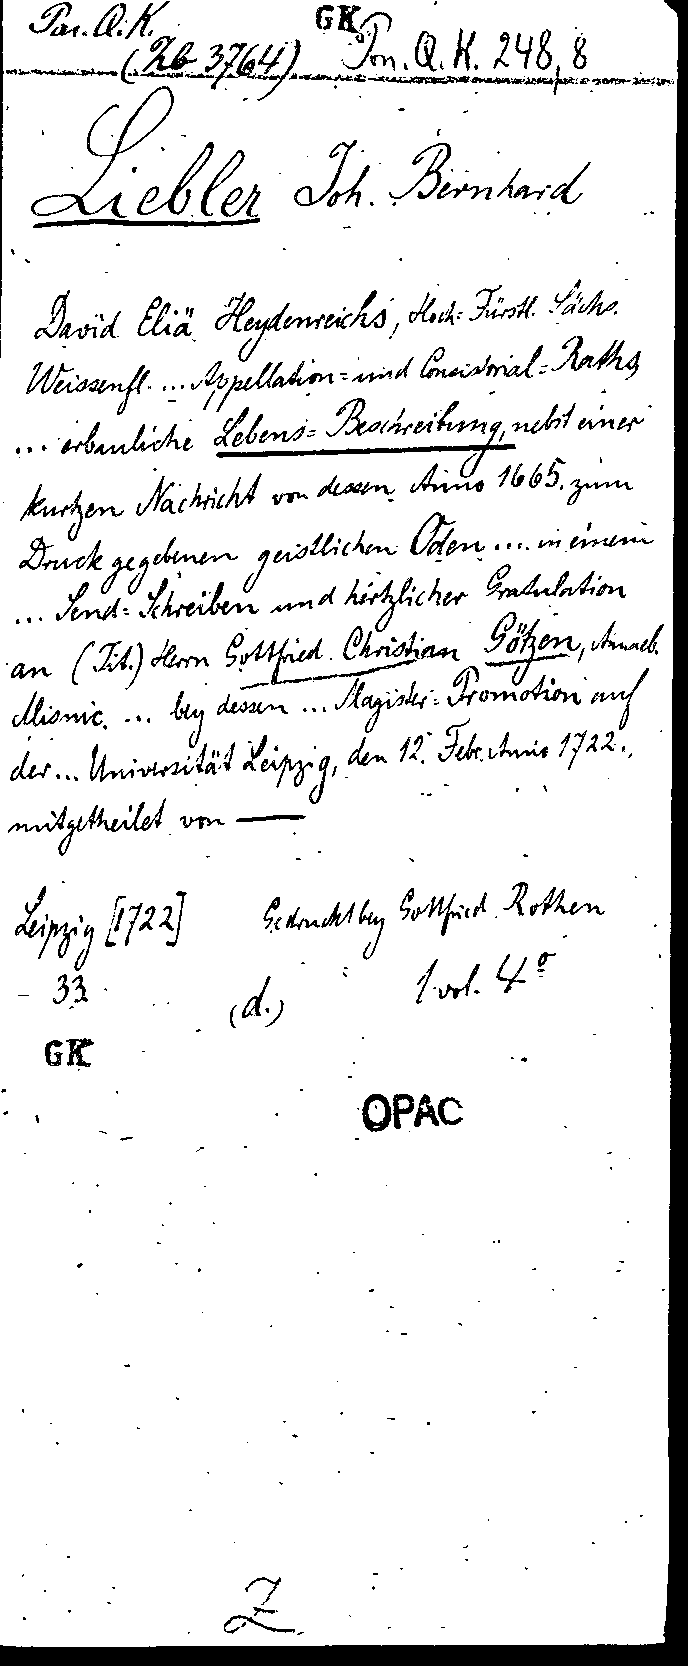 Pon. Q. K. GK
(Zb 3764) Pon. Q. K. 248, 8
Liebler Joh. Bernhard
David Eliä Heydenreichs, Hoch-Fürstl. Sächs.
Weissenfl. ... Appellation- und Consistorial-Raths
... erbauliche Lebens-Beschreibung, nebst einer
kurtzen Nachricht von dessen Anno 1665. zum
Druck gegebenen geistlichen Oden .... in einem
... Send-Schreiben und hertzlicher Gratulation
an (Tit.) Herrn Gottfried Christian Götzen, Annaeb.
Misnic. ... bey dessen ... Magister-Promotion auf
der ... Universität Leipzig, den 12. Febr. Anno 1722.,
mitgetheilet von —
Leipzig [1722] Gedruckt bey Gottfried Rothen
33 (d.) 1 vol. 4°
GK
OPAC
Z